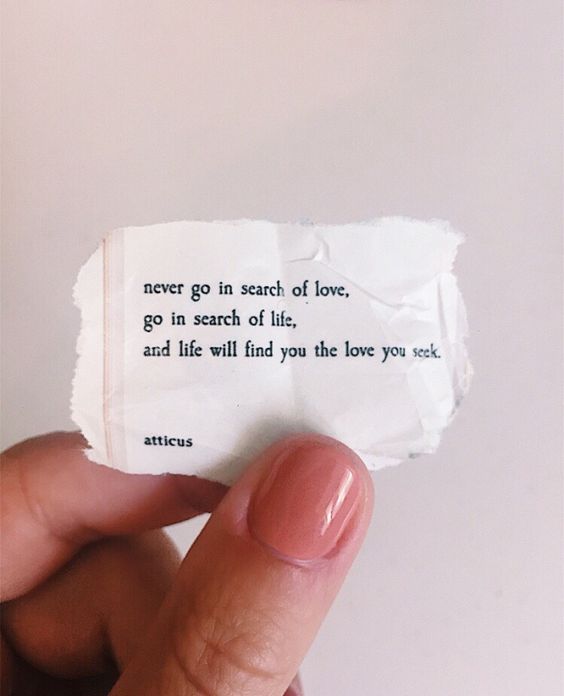 never go in search of love,
go in search of life,
and life will find you the love you seek.
atticus